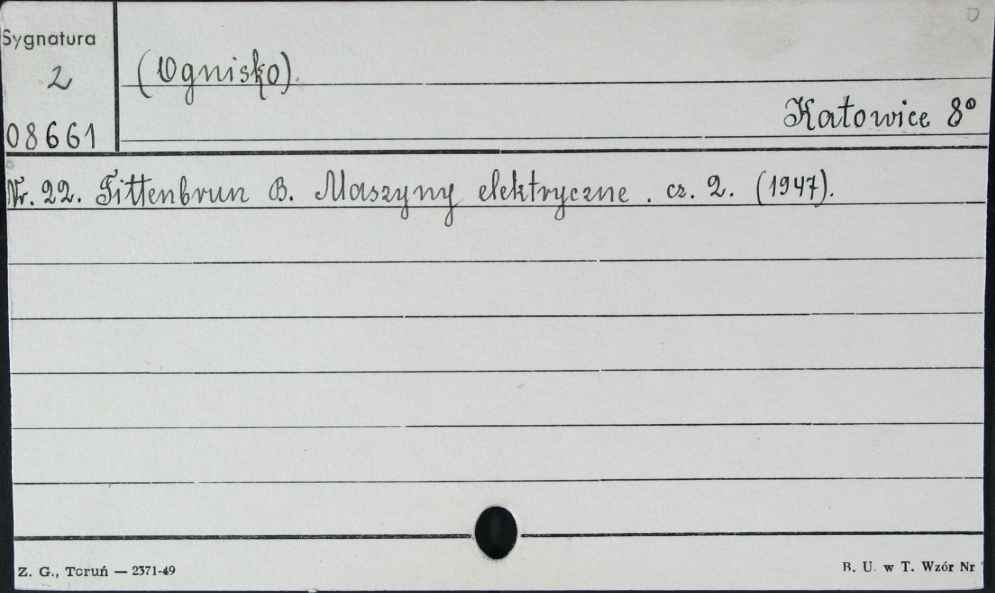 Sygnatura
2
(Ognisko).
Katowice 8°
08661
Nr. 22. Tittenbrun B. Maszyny elektryczne. cz. 2. (1947).
Z. G., Toruń — 2371-49
B. U. w T. Wzór Nr